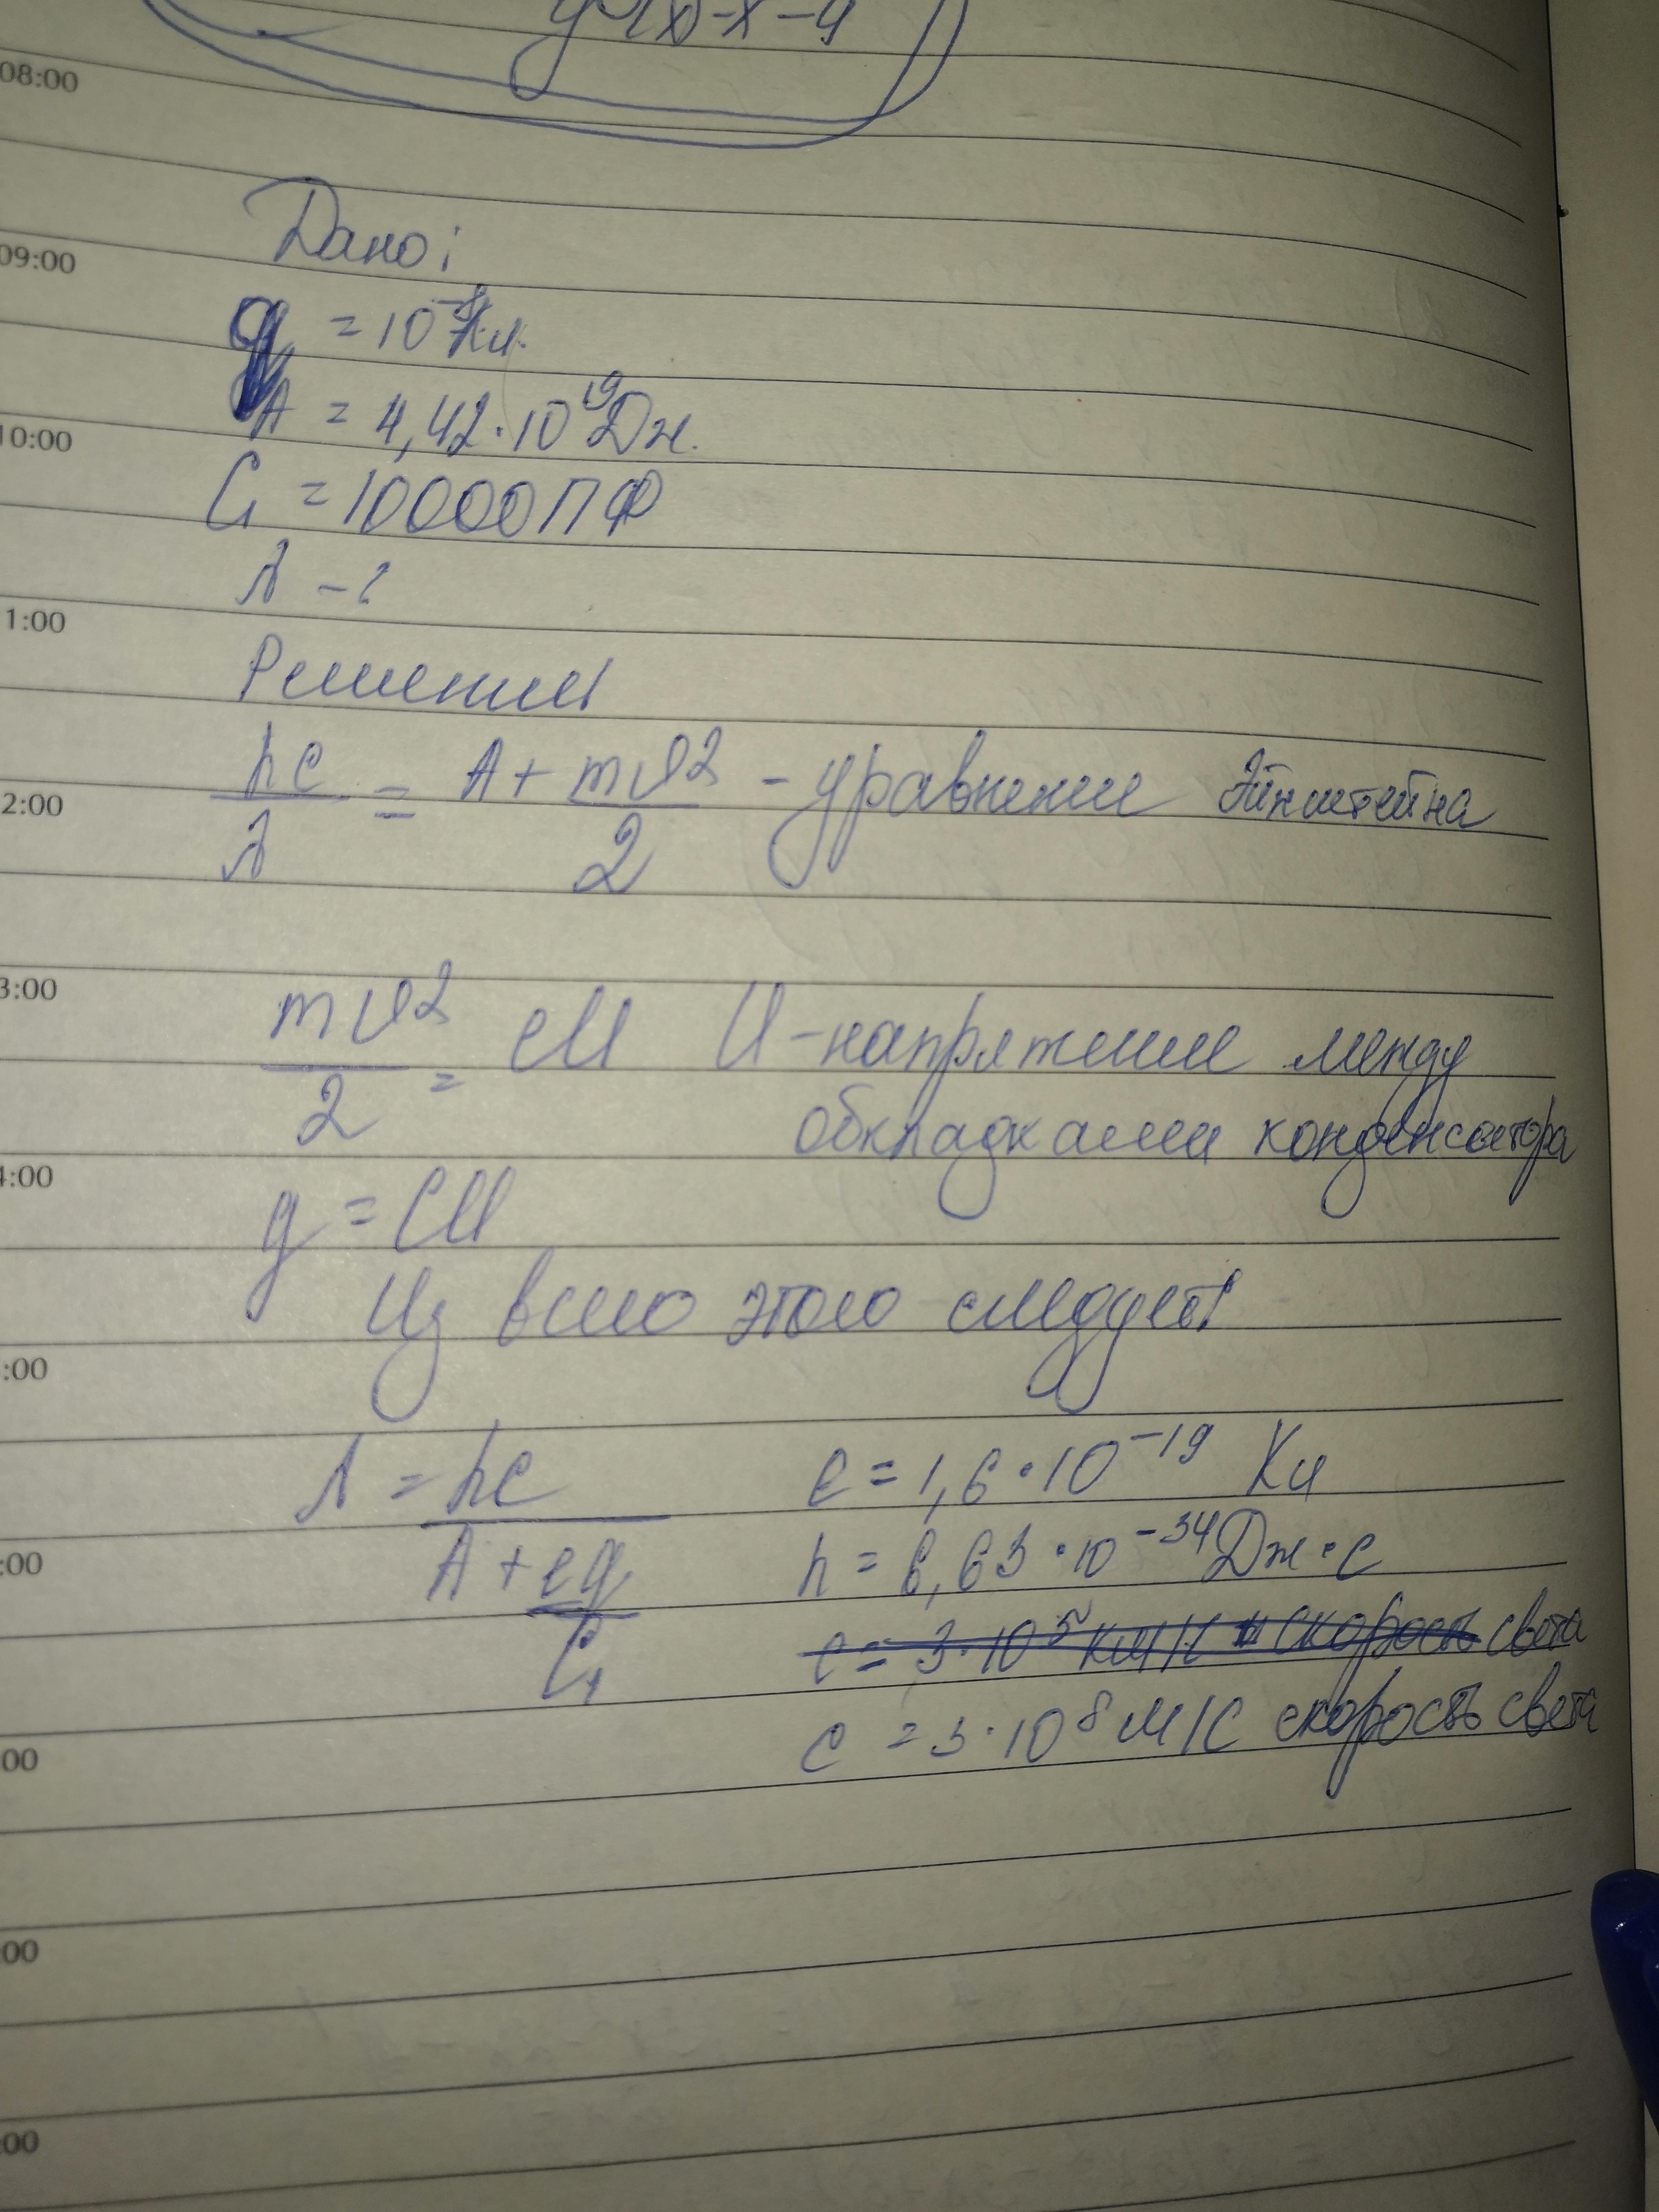 y=f(x)-x-4
08:00
Дано:
09:00
q = 10⁻⁸ Кл.
A = 4,42·10¹⁹ Дж.
10:00
C₁ = 10000 ПФ
λ - ?
1:00
Решение
hc/λ = A + mυ²/2 - уравнение Эйнштейна
2:00
3:00
mυ²/2 = eU U - напряжение между
обкладками конденсатора
4:00
q = CU
Из всего этого следует
:00
λ = hc/(A + eq/C₁) e = 1,6·10⁻¹⁹ Кл
h = 6,63·10⁻³⁴ Дж·с
:00
c = 3·10⁵ км/с скорость света
c = 3·10⁸ м/с скорость света
00
00
00